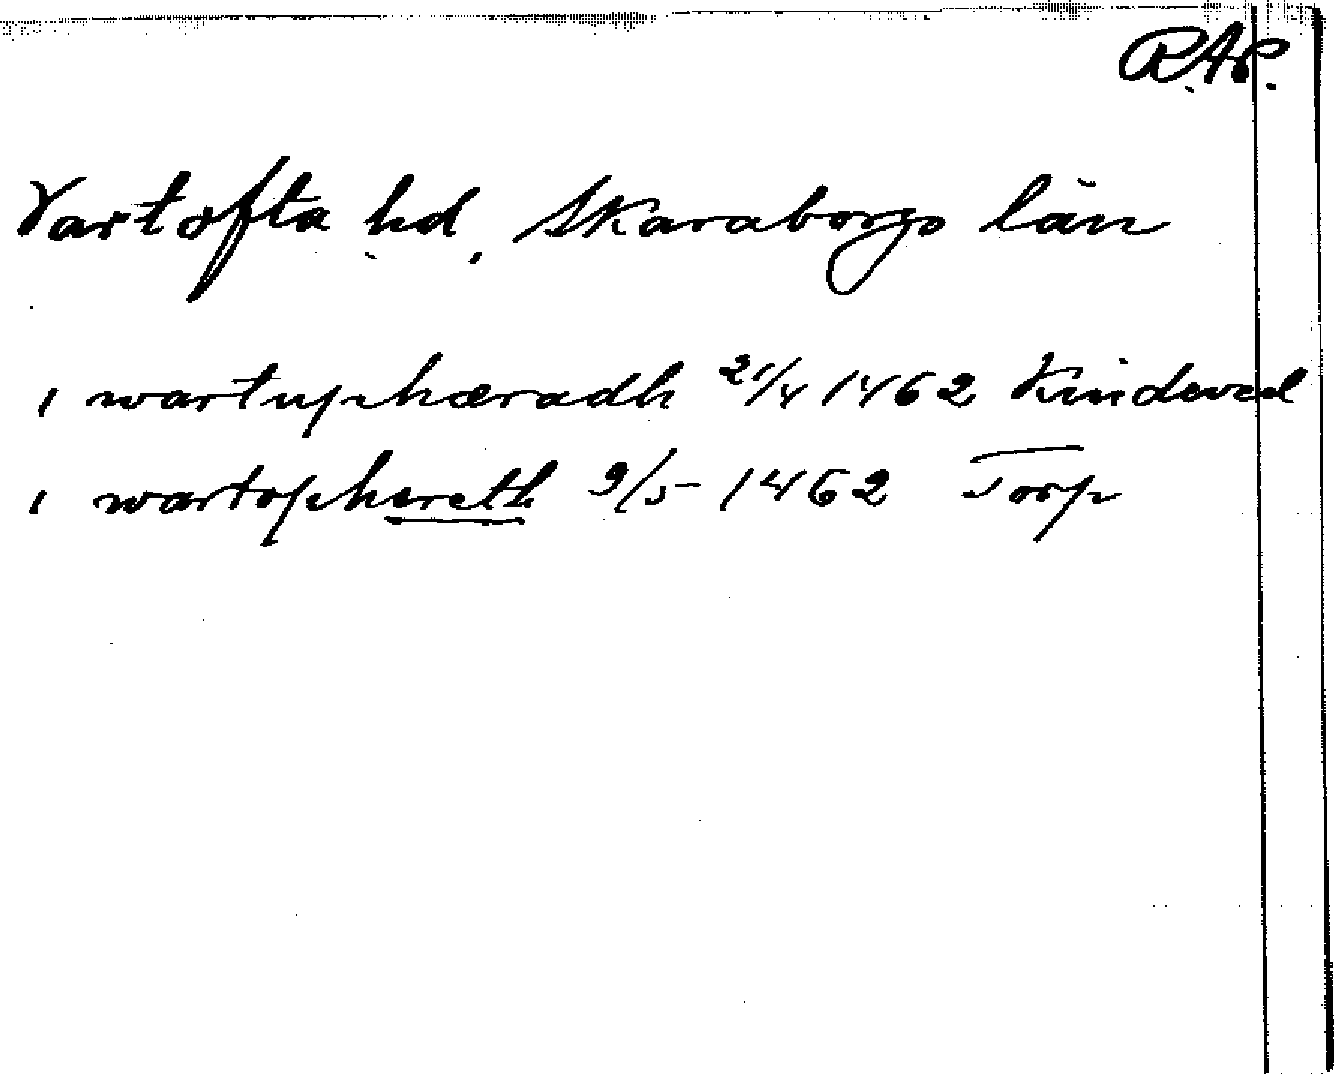 R.A.P.
Vartofta hd, Skaraborgs län
i wartuphæradh 21/4 1462 Kindevad
i wartophereth 9/5 1462 Torp